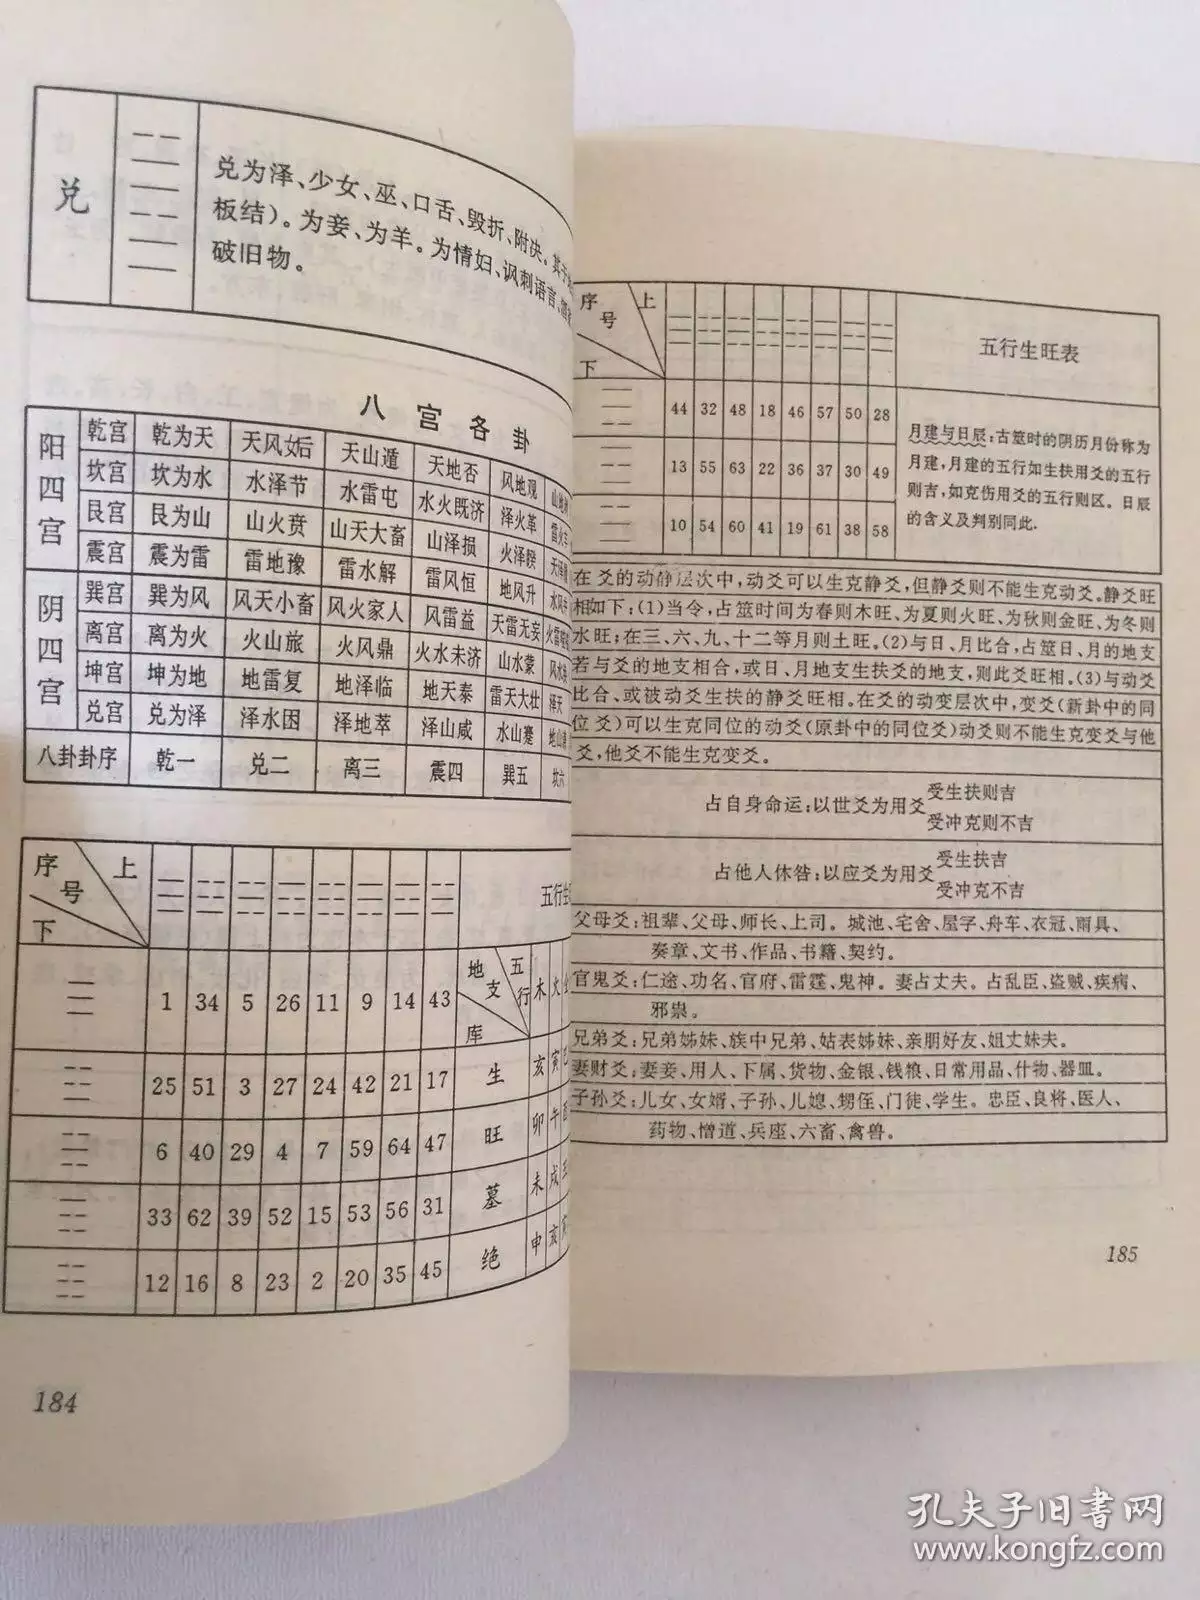 兑
兑为泽、少女、巫、口舌、毁折、附决。其于
板结)。为妾、为羊。为情妇、讽刺语言、
破旧物。
八宫各卦
阳四宫
乾宫 乾为天 天风姤 天山遁 天地否 风地观
坎宫 坎为水 水泽节 水雷屯 水火既济 泽火革
艮宫 艮为山 山火贲 山天大畜 山泽损 火泽睽
震宫 震为雷 雷地豫 雷水解 雷风恒 地风升
阴四宫
巽宫 巽为风 风天小畜 风火家人 风雷益 天雷无妄
离宫 离为火 火山旅 火风鼎 火水未济 山水蒙
坤宫 坤为地 地雷复 地泽临 地天泰 雷天大壮
兑宫 兑为泽 泽水困 泽地萃 泽山咸 水山蹇
八卦卦序 乾一 兑二 离三 震四 巽五 坎六
序号 上 下 五行生
1 34 5 26 11 9 14 43 地支 五行 库 木 火
25 51 3 27 24 42 21 17 生 亥 寅
6 40 29 4 7 59 64 47 旺 卯 午
33 62 39 52 15 53 56 31 墓 未 戌
12 16 8 23 2 20 35 45 绝 申 亥
184
序号 上 下 五行生旺表
44 32 48 18 46 57 50 28
13 55 63 22 36 37 30 49
10 54 60 41 19 61 38 58
月建与日辰:古筮时的阴历月份称为
月建,月建的五行如生扶用爻的五行
则吉,如克伤用爻的五行则区。日辰
的含义及判别同此.
在爻的动静层次中,动爻可以生克静爻,但静爻则不能生克动爻。静爻旺
相如下:(1)当令,占筮时间为春则木旺、为夏则火旺、为秋则金旺、为冬则
水旺;在三、六、九、十二等月则土旺。(2)与日、月比合,占筮日、月的地支
若与爻的地支相合,或日、月地支生扶爻的地支,则此爻旺相。(3)与动爻
比合、或被动爻生扶的静爻旺相。在爻的动变层次中,变爻(新卦中的同
位爻)可以生克同位的动爻(原卦中的同位爻)动爻则不能生克变爻与他
爻,他爻不能生克变爻。
占自身命运:以世爻为用爻 受生扶则吉
受冲克则不吉
占他人休咎:以应爻为用爻 受生扶吉
受冲克不吉
父母爻:祖辈、父母、师长、上司。城池、宅舍、屋字、舟车、衣冠、雨具、
奏章、文书、作品、书籍、契约。
官鬼爻:仁途、功名、官府、雷霆、鬼神。妻占丈夫。占乱臣、盗贼、疾病、
邪祟。
兄弟爻:兄弟姊妹、族中兄弟、姑表姊妹、亲朋好友、姐丈妹夫。
妻财爻:妻妾、用人、下属、货物、金银、钱粮、日常用品、什物、器皿。
子孙爻:儿女、女婿、子孙、儿媳、甥侄、门徒、学生。忠臣、良将、医人、
药物、憎道、兵座、六畜、禽兽。
185
孔夫子旧书网
www.kongfz.com